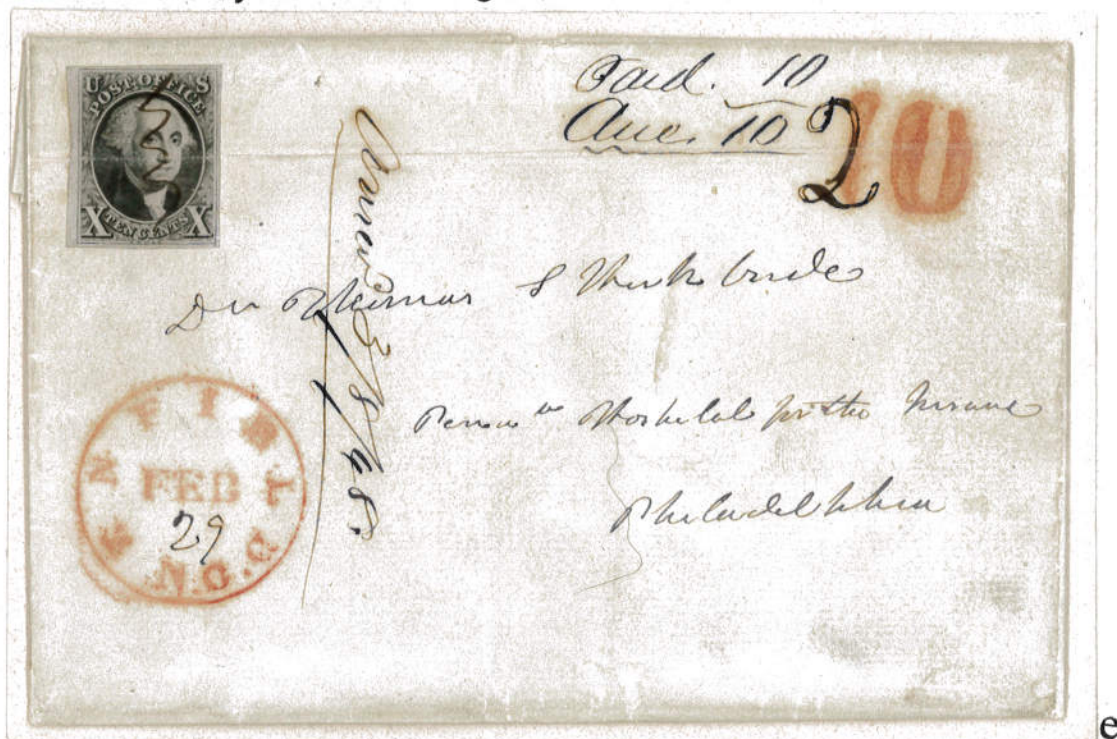 U S
POST OFFICE
X TEN CENTS X
Paid. 10
Due. 10
2
10
Dr Thomas S Kirkbride
Penna Hospital for the Insane
Philadelphia
3/8/48.
ENFIELD. N.C.
FEB
29
e